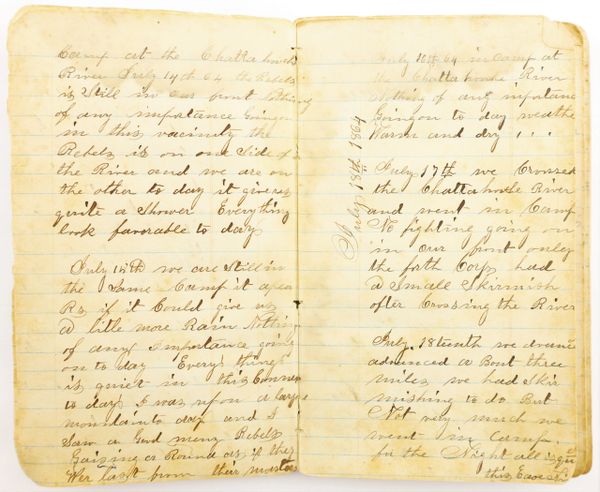 Camp at the Chattahooch
River July 14th 64 the Rebels
is Still in our front Nothing
of any importance Going on
in this vacinity the
Rebels is on one Side of
the River and we are on
the other to day it give us
quite a Shower Every thing
look favorable to day
July 15th we are Still in
the Same Camp it apea
Rs if it Could give us
a litle more Rain Nothing
of any Importance going
on to day Every thing
is quiet in this
to day I was upon a large
mountain to day and I
Saw a Good meny Rebels
Gaising or Round as if they
Wer lost from their
July 16th 64 in Camp at
the Chattahoochee River
Nothing of any importanc
Going on to day weathe
Warm and dry
July 18th 1864
July 17th we Crossed
the Chattahoochee River
and went in Camp
No fighting going on
in our front only
the forth Corps had
a Small Skirmish
after Crossing the River
July 18teuth we
advanced a Bout three
miles we had Skir
mishing to do But
Not very much we
went in Camp
for the Night all is
this